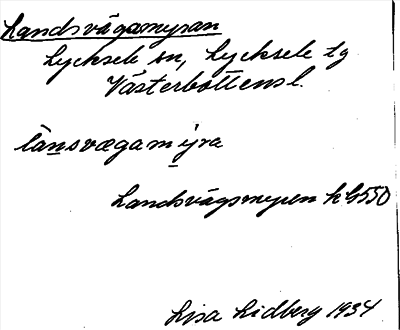 Landsvägamyran
Lycksele sn, Lycksele tg
Västerbottens l.
länsvægamyra
Landsvägsmyren kb550
Lisa Lidberg 1934